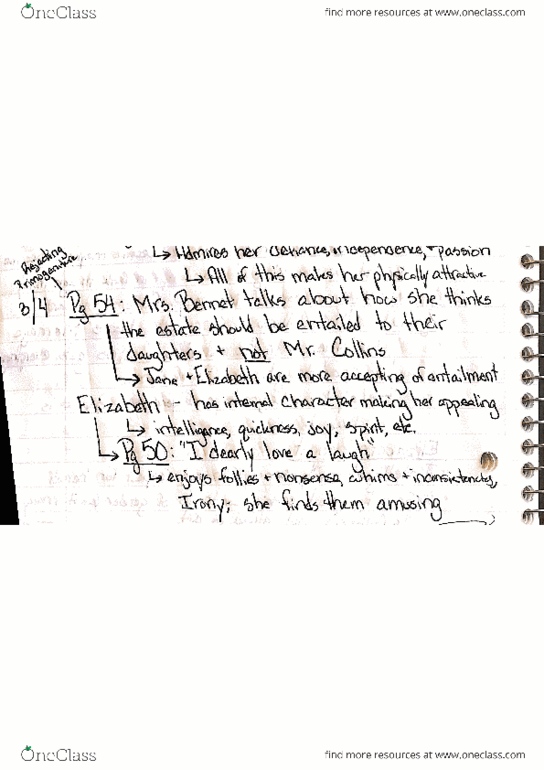 OneClass
find more resources at www.oneclass.com
↳ Admires her defiance, independence, + passion
Rejecting
Primogeniture
↳ All of this makes her physically attractive
3/4 Pg 54: Mrs. Bennet talks about how she thinks
the estate should be entailed to their
daughters + not Mr. Collins
↳ Jane + Elizabeth are more accepting of entailment
Elizabeth - has internal character making her appealing
↳ intelligence, quickness, joy, spirit, etc.
↳ Pg 50: "I dearly love a laugh"
↳ enjoys follies + nonsense, whims + inconsistencies,
Irony; she finds them amusing
OneClass
find more resources at www.oneclass.com